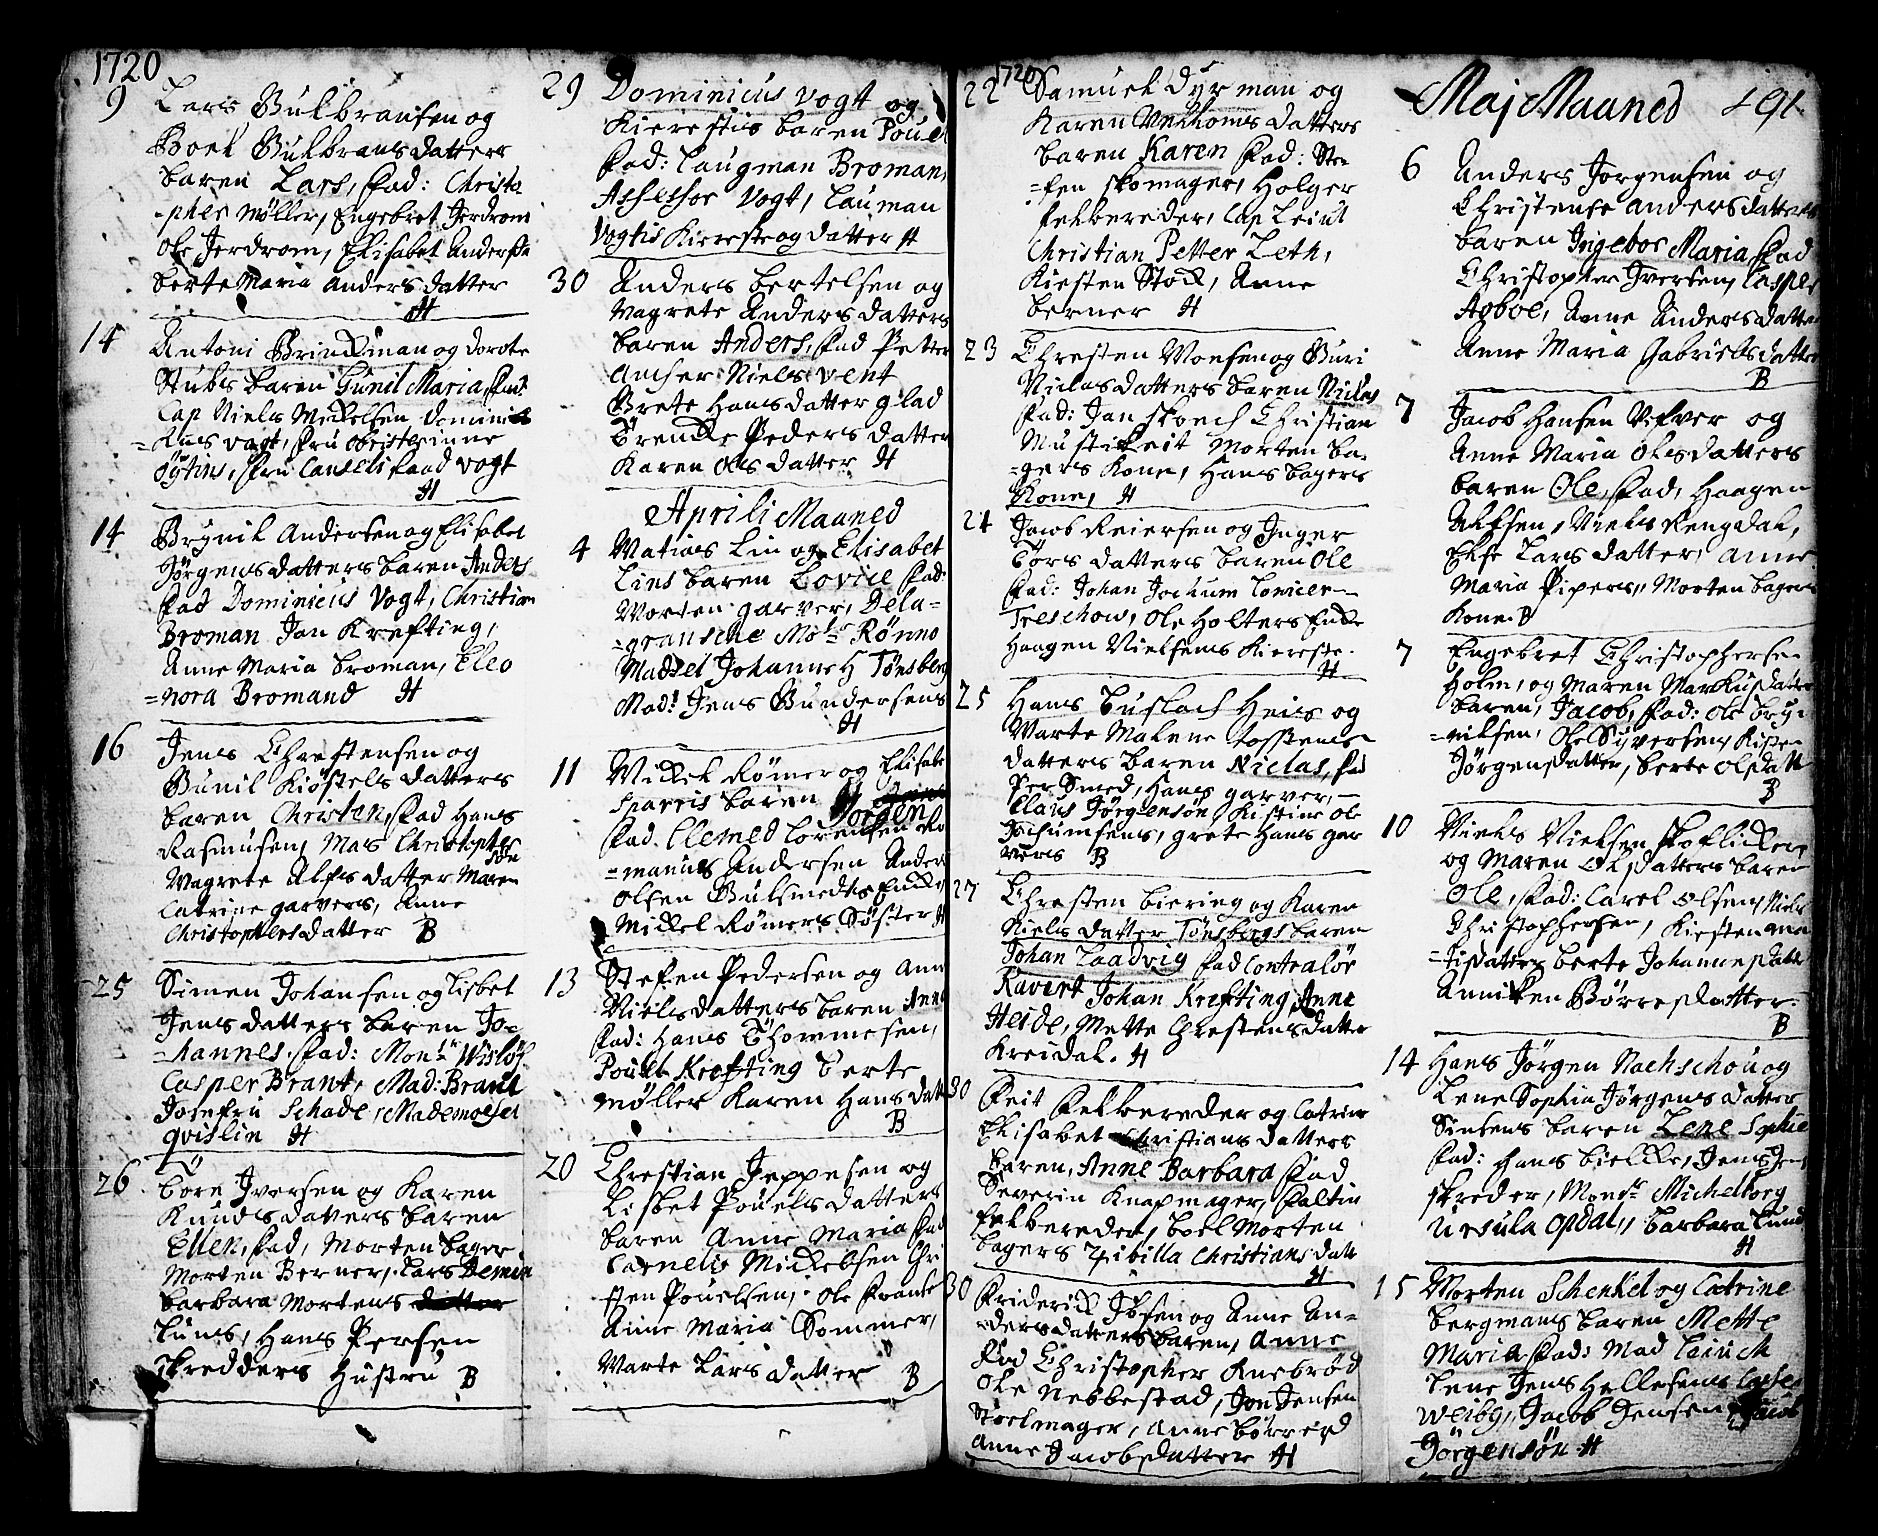 1720
9 Lars Gulbransen og
Boel Gulbransdatters
baren Lars, fad: Christo
-pher Møller, Engebret Jerdrom
Ole Jerdrom, Elisabet Anders
berte Maria Andersdatter
H
14 Antoni Brinckman og dorote
Stubs baren Gunil Maria, fad:
Cap Niels Mickelsen Domini
-kus Vogt, fru Obersterinne
fru Canseliraad Vogt
H
14 Brynil Andersen og Elisabet
Jørgensdatters baren Anders
fad Dominicus Vogt, Christian
Broman Jan Krefting,
Anne Maria Broman, Eleo
=nora Bromand H
16 Jens Christensen og
Gunil Kiøstels datters
baren Christen, fad Hans
Rasmusen, Mas Christophers
søn
Magrete Alfsdatter Maren
Catrine garvers, Anne
Christophersdatter B
25 Simen Johansen og Lisbet
Jensdatters baren Jo=
-hannes, fad: Monsr
Casper Brant, Mad: Brant
Josefru Schade, Mademoisel
Qvislin H
26 Tore Iversen og Karen
Knudsdatters baren
Ellen, fad, Morten bager
Morten Berner, Lars
barbara Mortens
Hans Persen
skredders Hustru B
29 Dominicus Vogt og
Kierestis baren Pouel
fad: Laugman Broman,
Assessor Vogt, Lauman
Vogtis Kiereste og datter H
30 Anders bertelsen og
Magrete Andersdatters
baren Anders, fad Petter
Niels Vent
Grete Hansdatter glad
Trencke Pedersdatter
Karen Olsdatter H
Aprili Maaned
4 Matias Lin og Elisabet
Lins baren Lovice fad:
Morten garver, Dela=
=gransche Monsr Rønno
Madsel Johanne H Tønsberg
Mad: Jens Gundersens
H
11 Mickel Rømer og Elisabe
Sparris baren
Jørgen
fad. Clemed Lorentsen Ro
=manus Andersen Anders
Olsen Gulsmeds Encke
Mickel Rømers Søster H
13 Stefen Pedersen og Ann
Nielsdatters baren Anne
fad: Hans Thommesen,
Pouel Krefting berte
Møller Karen Hansdatt
B
20 Chrestian Jeppesen og
Lisbet Pouels datters
baren Anne Maria fad
Cornelis Mickelsen Chri
sten Pouelsen, Ole Franke
Anne Maria Sommer,
Marte Larsdatter B
1720
22 Samuel Dyrman og
Karen datters
baren Karen fad: Ste=
=fen skomager, Holger
felbereder, Cap Leiut
Christian Petter Leth,
Kiesten Stock, Anne
berner H
23 Chresten Monsen og Guri
Niclasdatters baren Niclas
fad: Jan Christian
Morten ba=
=gers Kone, Hans bagers
Kone, H
24 Jacob Reiersen og Inger
Torsdatters baren Ole
fad: Johan Jochum
Treschow, Ole Holters Encke
Haagen Nielsens Kiereste.
H
25 Hans og
Marte Malene
datters baren Niclas, fad
Per Smed, Hans garver,
Claus Jørgensøn Kistine Ole
Jochumsens, grete Hans gar
vers B
27 Chresten Biering og Karen
Niels datter Tønsbergs baren
Johan Laadvig fad Contralør
Ravert Johan Krefting, Anne
Heide, Mette Chrestensdatter
Kreidal. H
30 Feit Felbereder og Catrine
Elisabet Christiansdatters
baren, Anne Barbara fad
Severin Knapmager, faltin
felbereder, boel Morten
bagers Zibilla Christians datt
H
30 Friderick og Anne An=
=dersdatters baren, Anne
fad Christopher Anebrød
Ole Nebbestad, Jon Jensen
Stoelmager, Anne
Anne Jacobsdatter H
Maj Maaned 191
6 Anders Jorgensen og
Christense Andersdatters
baren Ingebor Maria fad
Christopher Iversen, Casper
Agboe, Anne Anders datter
Anne Maria Gabrielsdatter
B
7 Jacob Hansen Vefver og
Anne Maria Olsdatters
baren Ole, fad, Haagen
Alfsen, Niels Rengdal,
Else Larsdatter, Anne
Maria Pipers, Morten bagers
Kone. B
7 Engebret Christophersen
Holm, og Maren Markusdatte
baren, Jacob, fad: Ole bry=
=nilsen, Ole Syversen
Jørgensdatter, berte Olsdatt
B
10 Niels Nielsen skoflicker
og Maren Olsdatters baren
Ole, fad: Carel Olsen, Niels
Christophersen, Kiesten Ma
=tisdatter berte Johannesdatt
Anniken Børresdatter.
B
14 Hans Jørgen Nachschou og
Lene Sophia Jørgensdatter
baren Lene Sophie
fad: Hans Bielcke, Jens
skreder, Monsr Michelborg
Ursula Opdal, barbara Lund
H
15 Morten Schenkel og Catrine
bergmans baren Mette
Maria, fad: Mad
Lene Jens Hellesens
Weiby, Jacob Jensen
Jörgensön H